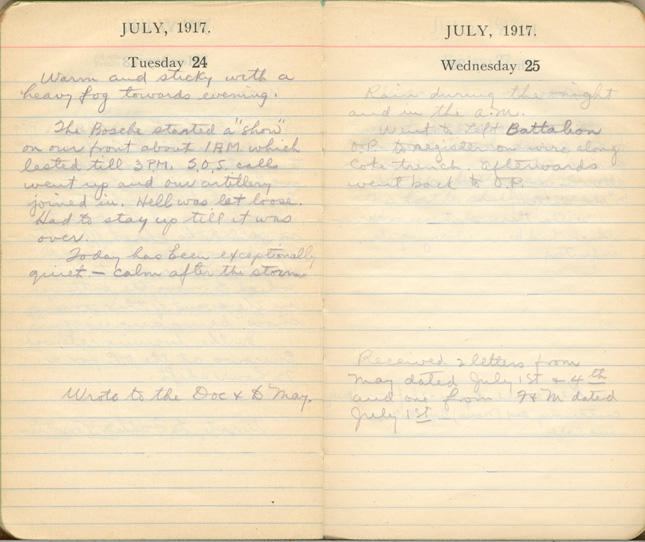 JULY, 1917.
Tuesday 24
Warm and sticky with a
heavy fog towards evening.
The Bosche started a "show"
on our front about 1 AM which
lasted till 3 P.M. S.O.S. calls
went up and our artillery
joined in. Hell was let loose.
Had to stay up till it was
over.
Today has been exceptionally
quiet — calm after the storm.
Wrote to the Doc & D May.
JULY, 1917.
Wednesday 25
Rain during the night
and in the a.m.
Went to Left Battalion
O.P. to register on wire along
Cote trench. Afterwards
went back to O.P.
Received 2 letters from
May dated July 1st & 4th
and one from M dated
July 1st